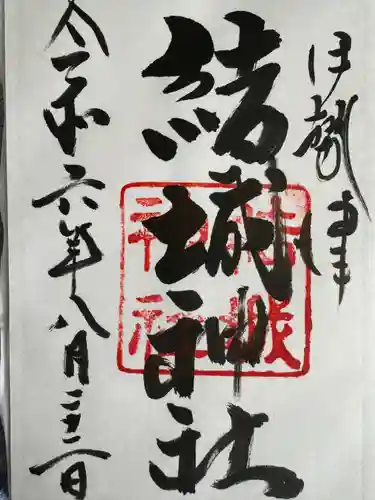 伊勢 津
結城神社
令和六年八月二十二日
結城
神社